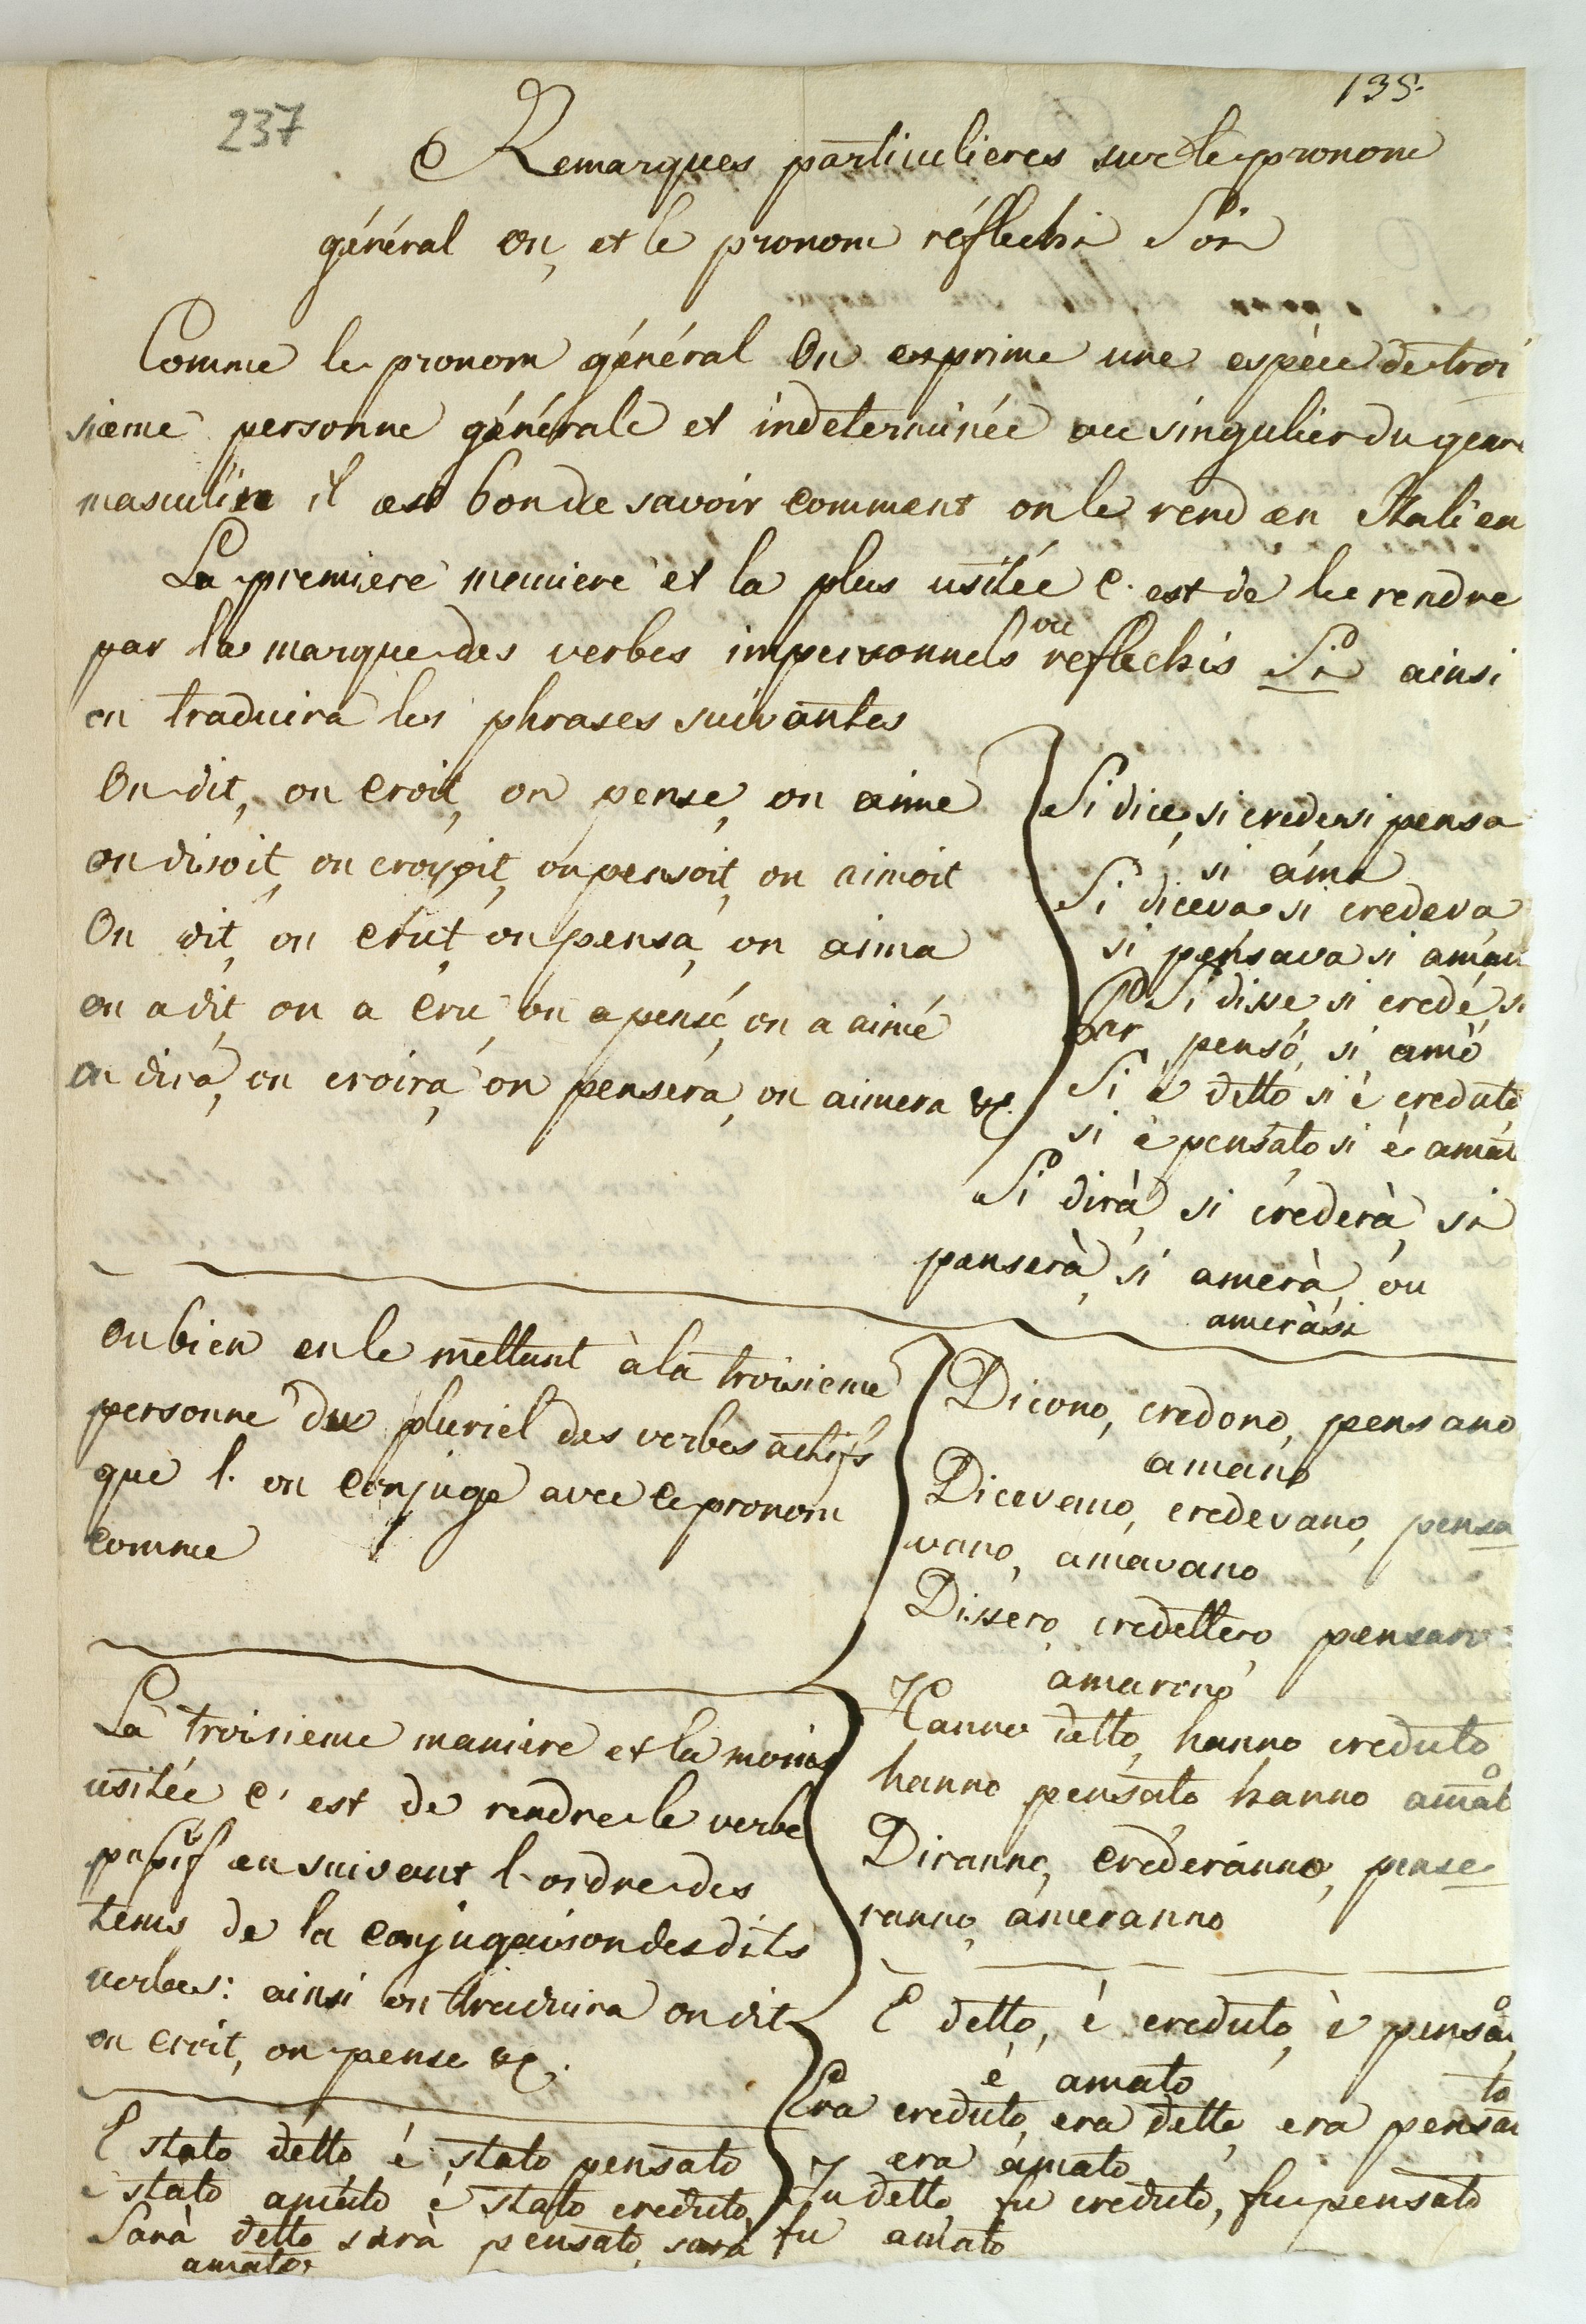 237
135.
Remarques particulieres sur le pronom
général on, et le pronom réflechi Soi
Comme le pronom général On exprime une espèce de troi
sieme personne générale et indeterminée au singulier du genr
masculin il est bon de savoir comment on le rend en Italien
La premiere maniere et la plus usitée c'est de le rendre
par la marque des verbes impersonnels ou reflechis Si ainsi
on traduira les phrases suivantes
On dit, on croit, on pense, on aime
on disoit, on croyoit, on pensoit, on aimoit
On dit, on crut, on pensa, on aima
on a dit, on a cru, on a pensé, on a aimé
on dira, on croira, on pensera, on aimera &c.
Si dice, si crede, si pensa
si ama
Si diceva si credeva,
si pensava si amav
Si disse, si credé, si
pensó, si amó
Si è detto si è creduto
si è pensato si è amat
Si dirà, si crederà, si
penserà, si amerà, ou
amerassi
Ou bien en le mettant à la troisieme
personne du pluriel des verbes actifs
que l'on conjuge avec ce pronom
comme
Dicono, credono, pensano
amano
Dicevano, credevano, pensa
vano, amavano
Dissero, credettero, pensaro
amarono
Hanno detto, hanno creduto,
hanno pensato hanno amato
Diranno, crederanno, pense
ranno, ameranno
La troisieme maniere et la moins
usitée c'est de rendre le verbe
passif en suivant l'ordre des
tems de la conjugaison des dits
verbes: ainsi on traduira on dit
on croit, on pense &c.
E detto, è creduto, è pensato,
è amato
Era creduto, era detto, era pensato
era amato
Fu detto, fu creduto, fu pensato
fu amato
E stato detto é stato pensato
è stato amato é stato creduto,
Sarà detto sarà pensato, sarà
amato.